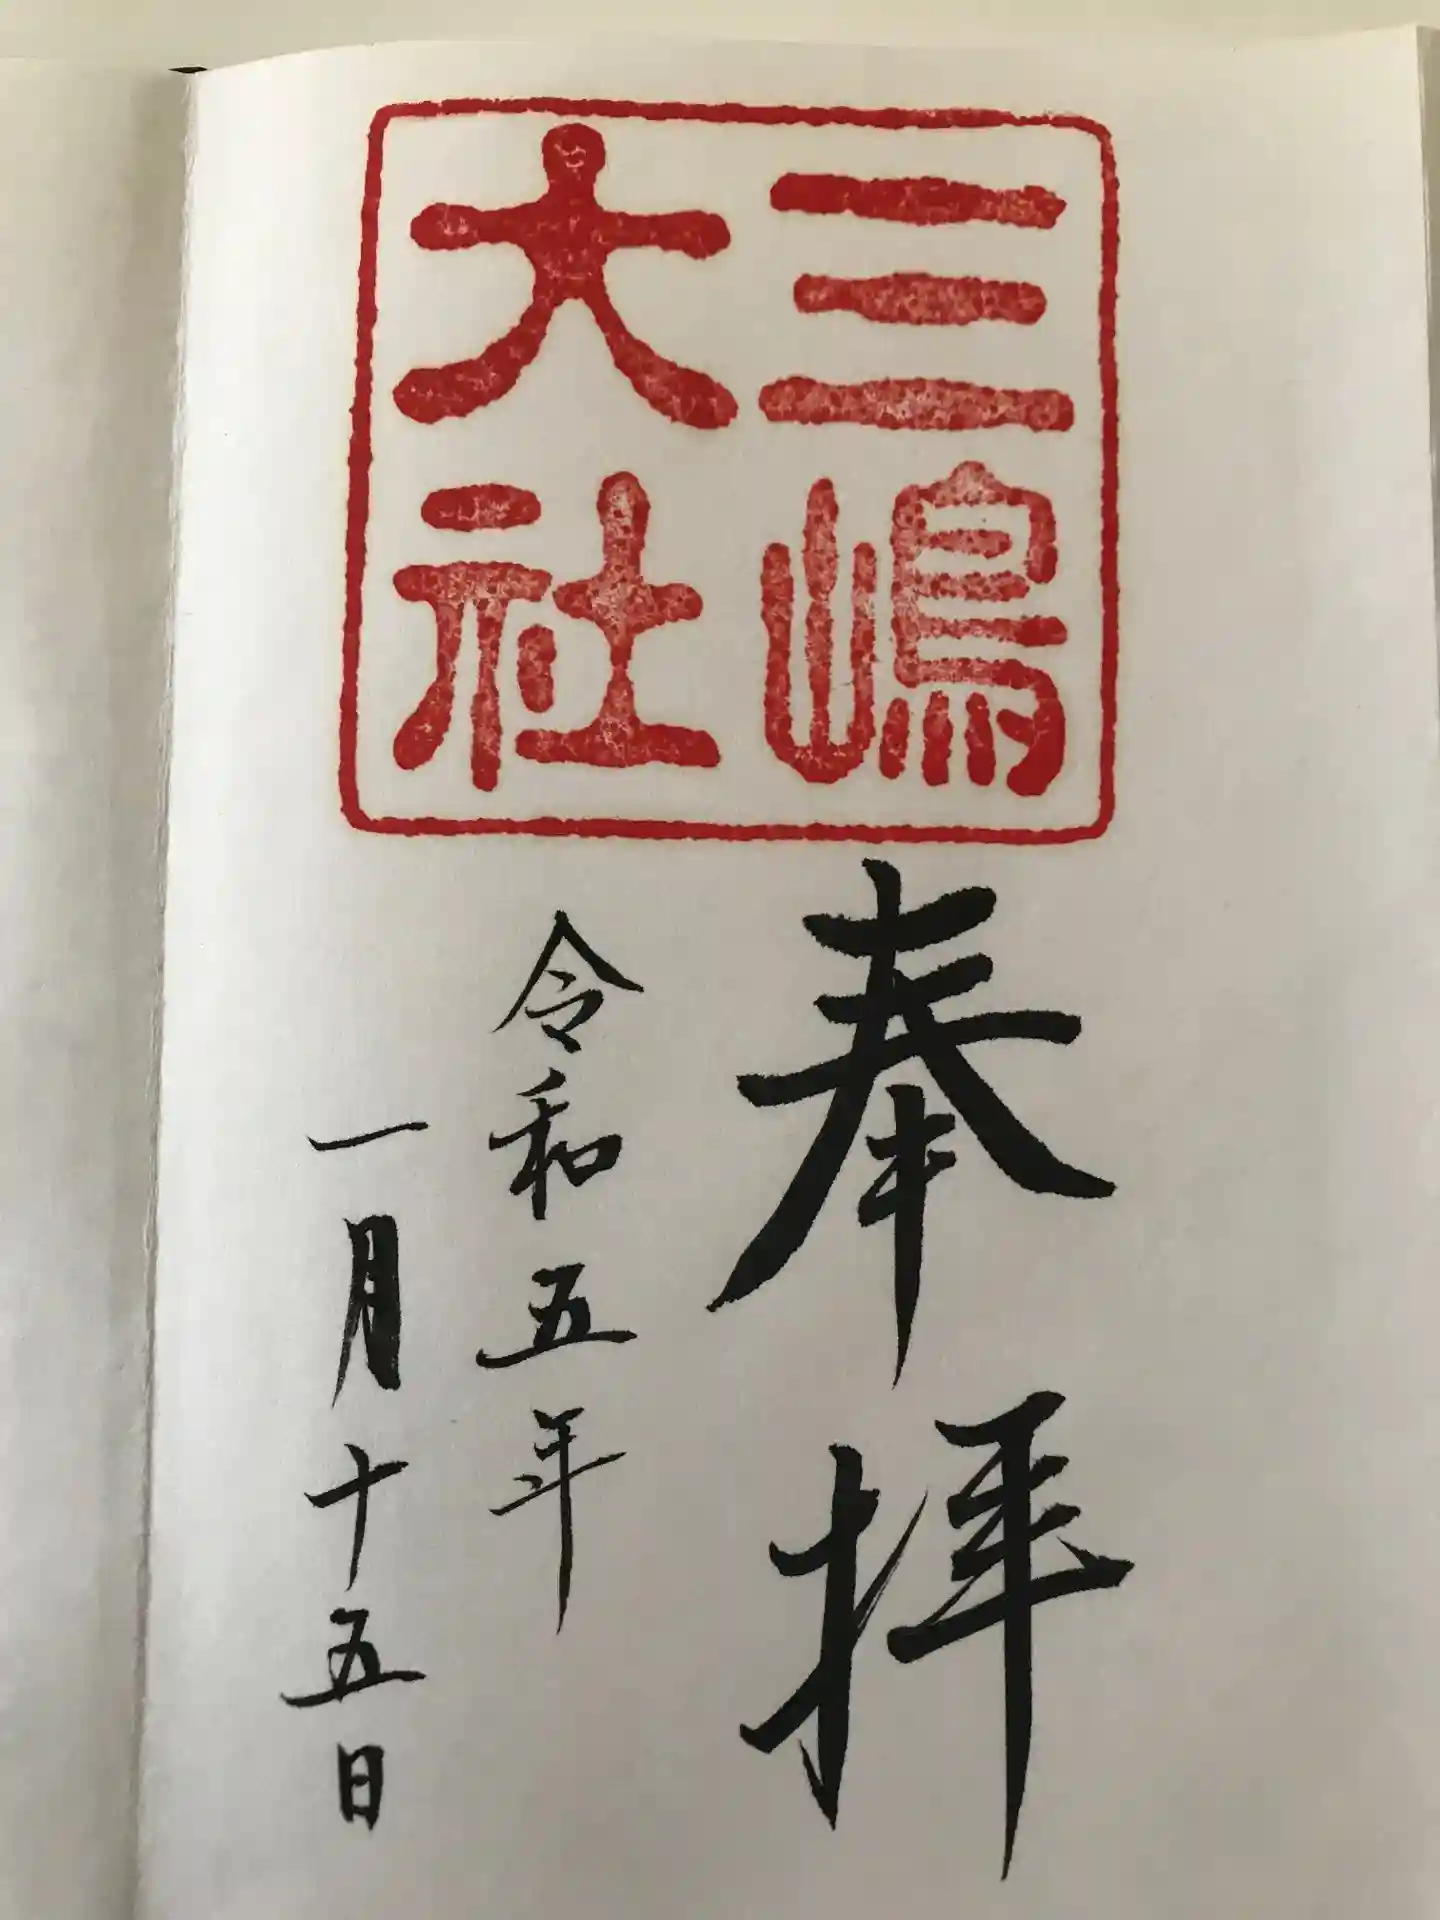 三嶋
大社
奉拝
令和五年
一月十五日